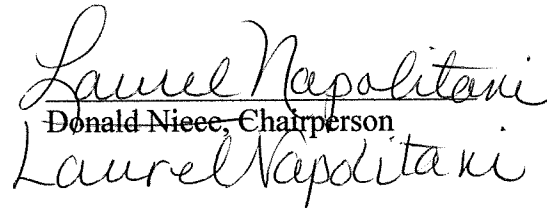 Laurel Napolitani
Donald Niece, Chairperson
Laurel Napolitani